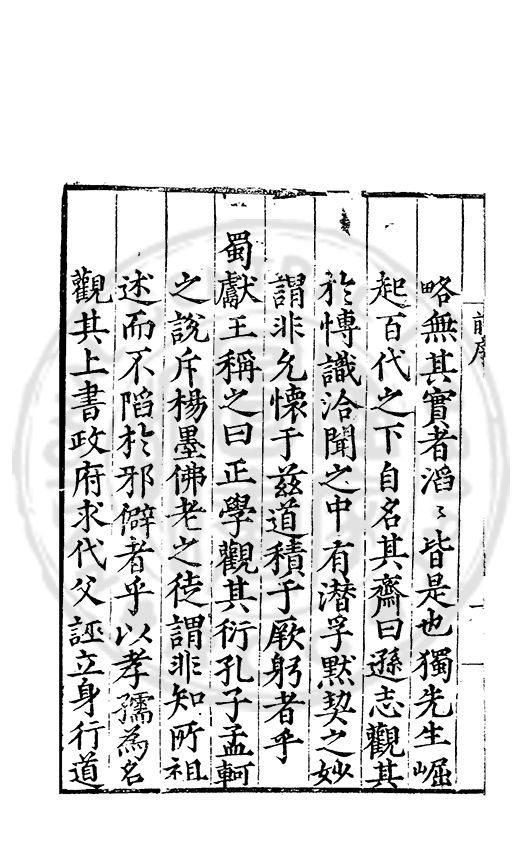 略無其實者滔〻皆是也獨先生崛
起百代之下自名其齋曰遜志觀其
於慱識洽聞之中有潛孚默契之妙
謂非允懷于兹道積于厥躬者乎
蜀獻王稱之曰正學觀其衍孔子孟軻
之說斥楊墨佛老之徒謂非知所祖
述而不陷於邪僻者乎以孝孺為名
觀其上書政府求代父誣立身行道